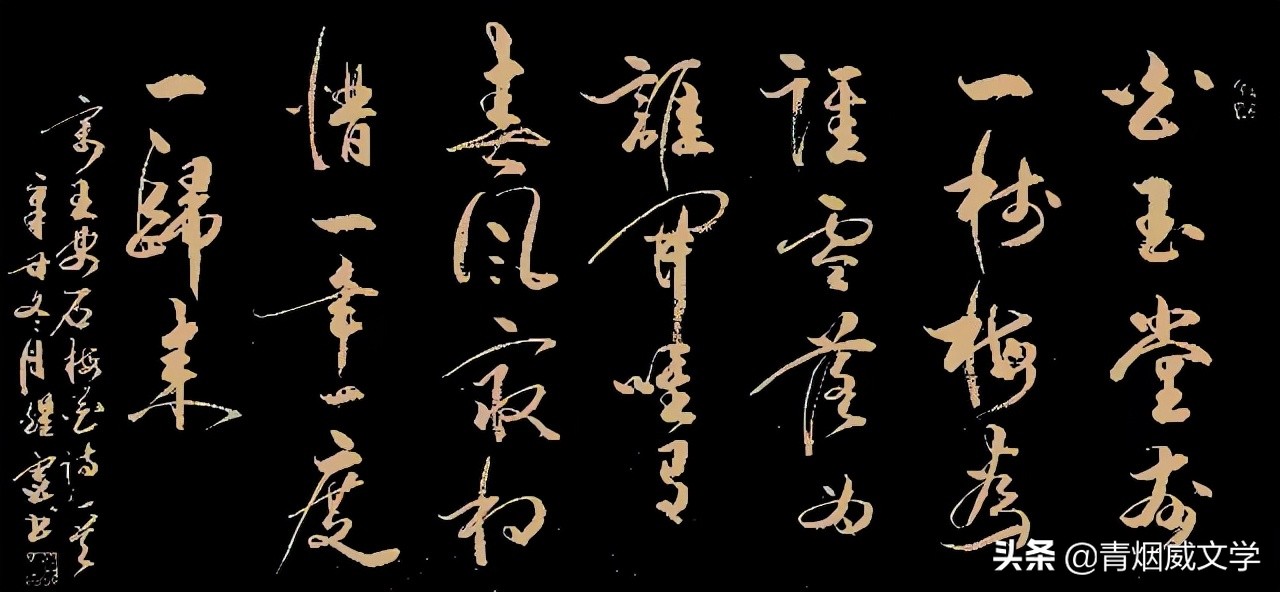 白玉堂前
一树梅為
誰零落为
誰開唯有
春风最相
惜一年一度
一歸来
寫王安石梅花诗一首
辛丑冬月
头条 @青烟威文学